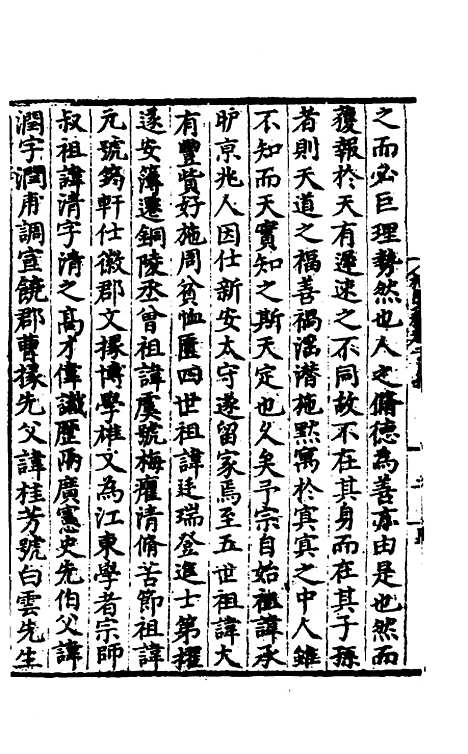 之而必巨理勢然也人之脩德為善亦由是也然而
獲報於天有遲速之不同故不在其身而在其子孫
者則天道之福善禍滛潜施默寓於㝠㝠之中人雖
不知而天實知之斯天定也久矣予宗自始祖諱承
旷京兆人因仕新安太守遂留家焉至五世祖諱大
有豐貲好施周貧恤匱四世祖諱廷瑞登進士第擢
遂安簿遷銅陵丞曾祖諱虞號梅癯清脩苦節祖諱
元號筠軒仕徽郡文掾博學雄文為江東學者宗師
叔祖諱清字清之高才偉識歷兩廣憲史先伯父諱
潤字潤甫調宣饒郡曹掾先父諱桂芳號白雲先生